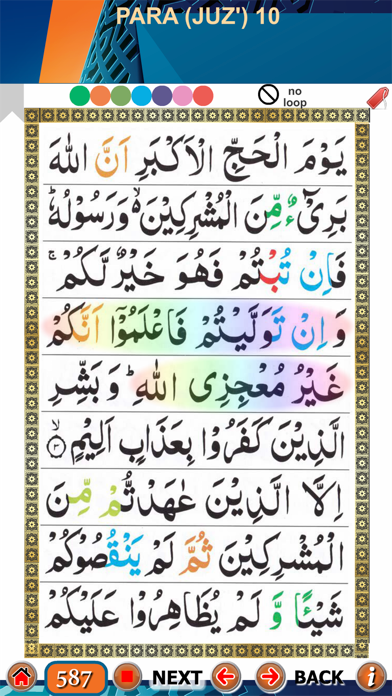 PARA (JUZ') 10
no
loop
يَوْمَ الْحَجِّ الْاَكْبَرِ اَنَّ اللّٰهَ
بَرِیْٓءٌ مِّنَ الْمُشْرِكِیْنَ ۙ۬ وَ رَسُوْلُهٗ ؕ
فَاِنْ تُبْتُمْ فَهُوَ خَیْرٌ لَّكُمْ ۚ
وَ اِنْ تَوَلَّیْتُمْ فَاعْلَمُوْۤا اَنَّكُمْ
غَیْرُ مُعْجِزِی اللّٰهِ ؕ وَ بَشِّرِ
الَّذِیْنَ كَفَرُوْا بِعَذَابٍ اَلِیْمٍ ۙ﴿۳﴾
اِلَّا الَّذِیْنَ عٰهَدْتُّمْ مِّنَ
الْمُشْرِكِیْنَ ثُمَّ لَمْ یَنْقُصُوْكُمْ
شَیْـًٔا وَّ لَمْ یُظَاهِرُوْا عَلَیْكُمْ
587 NEXT BACK i